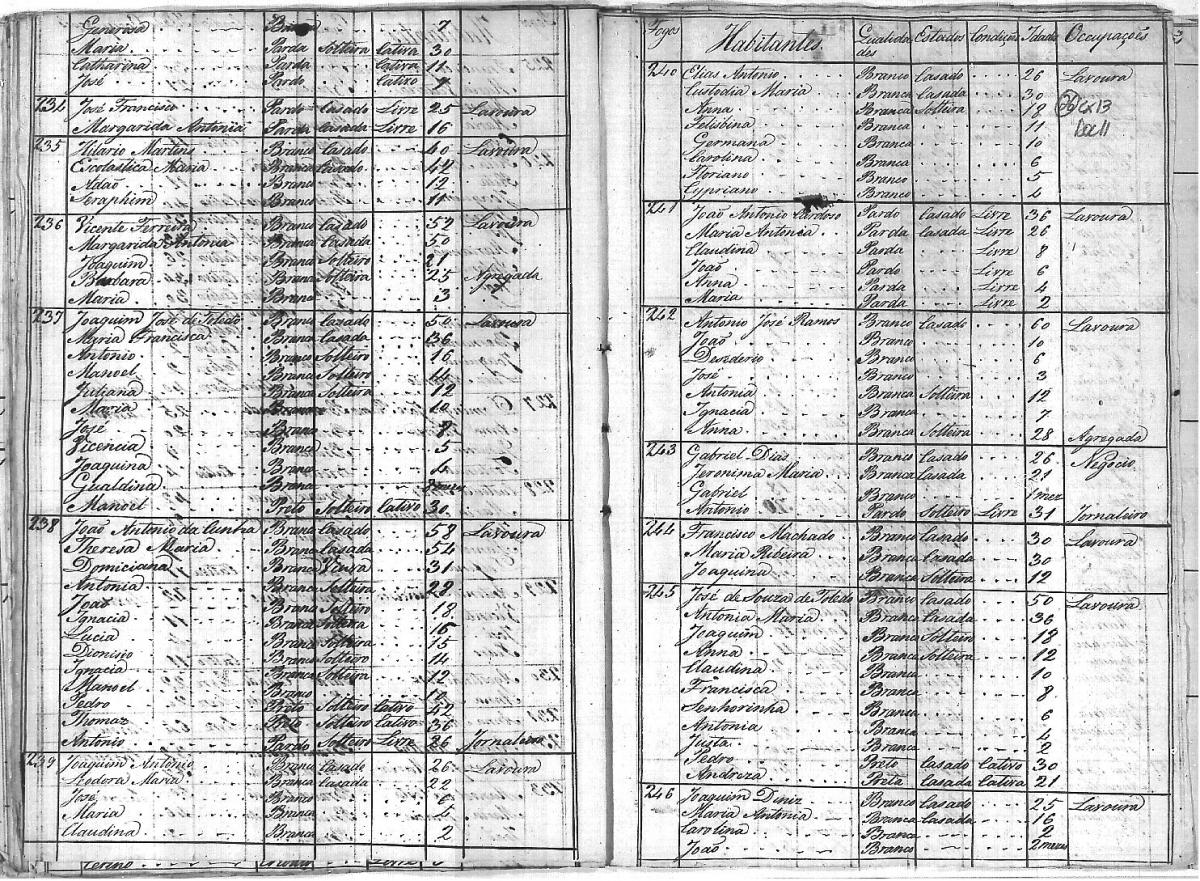 Generosa Branca 7
Maria Parda Solteira Cativa 30
Catharina Parda Cativa 11
José Pardo Cativo 9
234 José Francisco Pardo Casado Livre 25 Lavoura
Margarida Antonia Parda Casada Livre 16
235 Hilario Martins Branco Casado 40 Lavoura
Escolastica Maria Branca Casado 42
Adaõ Branco 12
Seraphim Branco 11
236 Vicente Ferreira Branco Casado 52 Lavoura
Margarida Antonia Branca Casada 50
Joaquim Branco Solteiro 21
Barbara Branca Solteira 25 Agregada
Maria Branca 3
237 Joaquim José de Toledo Branco Casado 50 Lavoura
Maria Francisca Branca Casada 36
Antonio Branco Solteiro 16
Manoel Branco Solteiro 14
Juliana Branca Solteira 12
Maria Branca 10
José Branco 8
Vicencia Branca 5
Joaquina Branca 4
Gualdina Branca mezes
Manoel Preto Solteiro Cativo 30
238 Joaõ Antonio da Cunha Branco Casado 58 Lavoura
Theresa Maria Branca Casada 54
Domiciana Branca Viuva 31
Antonia Branca Solteira 28
Joaõ Branco Solteiro 18
Ignacia Branca Solteira 16
Lucia Branca Solteira 15
Dionisio Branco Solteiro 14
Ignacia Branca Solteira 12
Manoel Branco 10
Pedro Preto Solteiro Cativo 52
Thomaz Preto Solteiro Cativo 36
Antonio Pardo Solteiro Livre 26 Jornaleiro
239 Joaquim Antonio Branco Casado 26 Lavoura
Redora Maria Branca Casada 22
José Branco 6
Maria Branca 4
Claudina Branca 2
Fogos Habitantes Qualidades Estados Condições Idades Occupações
240 Elias Antonio Branco Casado 26 Lavoura
Custodia Maria Branca Casada 30
Anna Branca Solteira 18
Felisbina Branca 11
Germana Branca 10
Carolina Branca 6
Floriano Branco 5
Cypriano Branco 4
26 Cx 13
Doc 11
241 Joaõ Antonio Cardoso Pardo Casado Livre 36 Lavoura
Maria Antonia Parda Casada Livre 26
Claudina Parda Livre 8
Joaõ Pardo Livre 6
Anna Parda Livre 4
Maria Parda Livre 2
242 Antonio José Ramos Branco Casado 60 Lavoura
Joaõ Branco 10
Desiderio Branco 6
José Branco 3
Antonia Branca Solteira 12
Ignacia Branca 7
Anna Branca Solteira 28 Agregada
243 Gabriel Dias Branco Casado 26 Negocio
Jeronima Maria Branca Casada 21
Gabriel Branco 1 mez
Antonio Pardo Solteiro Livre 31 Jornaleiro
244 Francisco Machado Branco Casado 30 Lavoura
Maria Ribeira Branca Casada 30
Joaquina Branca Solteira 12
245 José de Souza de Toledo Branco Casado 50 Lavoura
Antonia Maria Branca Casada 36
Joaquim Branco Solteiro 18
Anna Branca Solteira 12
Claudina Branca 10
Francisca Branca 8
Senhorinha Branca 6
Antonia Branca 4
Justa Branca 2
Pedro Preto Casado Cativo 30
Andreza Preta Casada Cativa 21
246 Joaquim Diniz Branco Casado 25 Lavoura
Maria Antonia Branca Casada 16
Carolina Branca 2
Joaõ Branco 2 mezes